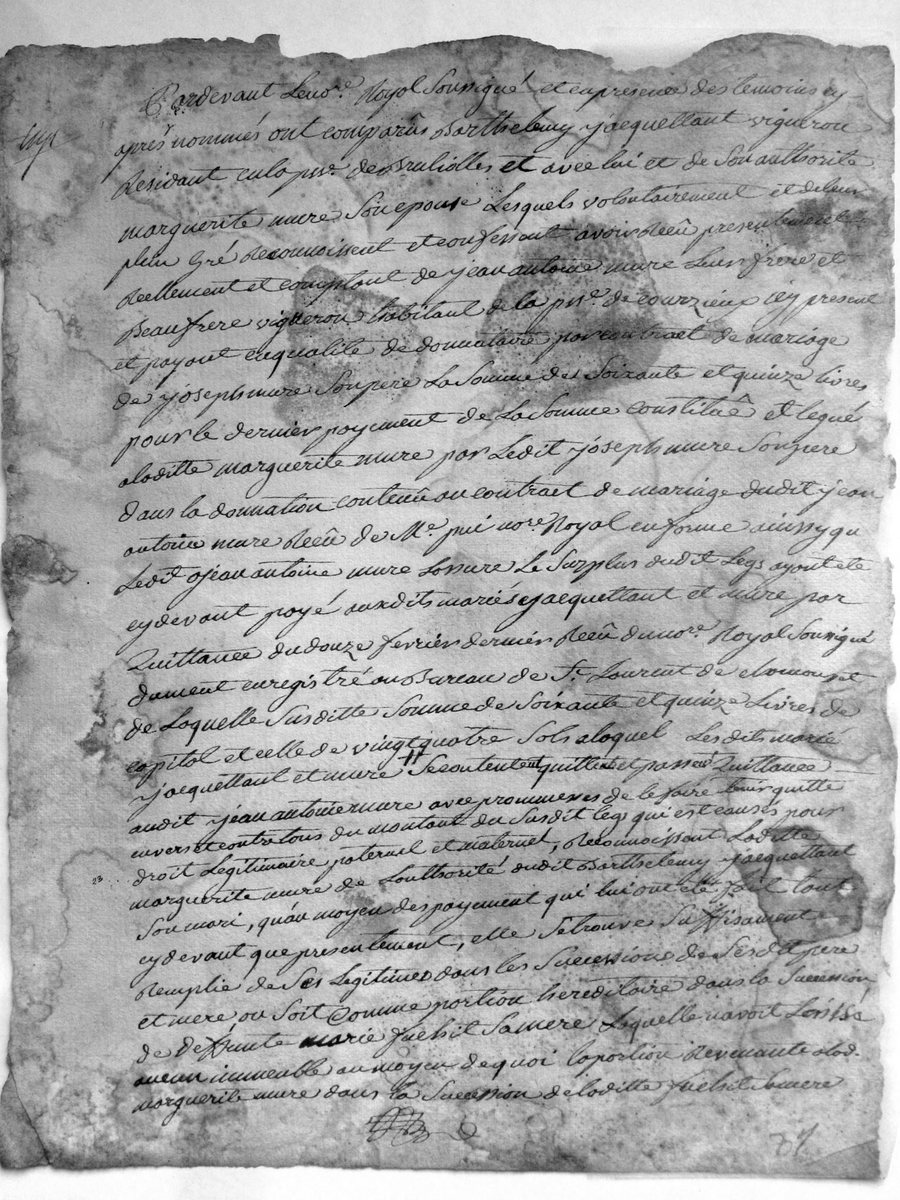 Pardevant Le no.re Royal Soussigné et en presence des temoins cy
après nommés ont comparûs Barthelemy jacquettant vigneron
Residant en la p.sse de Brullioles et avec lui et de Son authorité
marguerite mure Son epouse Lesquels volontairement et de leur
plein Gré Reconnoissent et confessent avoir Reçû presentement
Reellement et comptant de jean antoine mure Leur frere et
Beaufrere vigneron habitant de la p.sse de courzieux icy present
et payant en qualité de donnataire par contract de mariage
de joseph mure Son pere La Somme de Soixante et quinze livres
pour le dernier payement de La Somme constituê et legué
a laditte marguerite mure par Ledit joseph mure Son pere
dans la donnation contenuê au contract de mariage dudit jean
antoine mure Reçû de M.e no.re Royal en forme ainssy qu
Ledit jean antoine mure Lassure Le Surplus dudit Legs ayant eté
cy devant payé auxdits mariés jacquettant et mure par
Quittance du douze fevrier dernier Reçû du no.re Royal Soussigné
dument enregistré au Bureau de S.t Laurent de chamousset
de Laquelle Susditte Somme de Soixante et quinze Livres de
capital et celle de vingt quatre Sols a loquel Lesdits marié
jacquettant et mure Se contentent quittent et passent Quittance
audit jean antoine mure avec prommesses de le faire tenir quitte
envers et contre tous du montant du Susdit legs qui est causés pour
droit Legitimaire paternel et maternel, Reconnoissant Laditte
marguerite mure de Lauthorité dudit Barthelemy jacquettant
Son mari, qu'au moyen des payement qui lui ont eté fait tant
cy devant que presentement, elle Se trouve Suffisament
Remplie de Ses Legitimes dans les Succession de Sesdit pere
et mere ou Soit comme portion hereditaire dans la Succession
de Deffunte marie Sa mere Laquelle n'avoit Laissé
aucun immeuble au moyen de quoi la portion Revenante a lad.
marguerite mure dans la Succession de laditte Sa mere